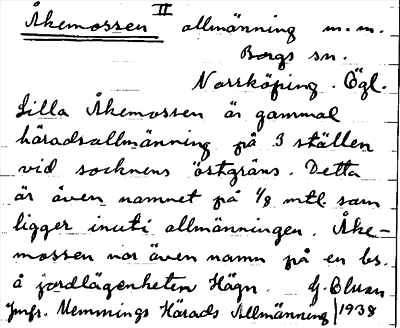 Åkemossen II allmänning m.m.
Borgs sn.
Norrköping. Ögl.
Lilla Åkemossen är gammal
häradsallmänning på 3 ställen
vid socknens östgräns. Detta
är även namnet på 1/8 mtl. som
ligger inuti allmänningen. Åke-
mossen var även namn på en bs.
å jordlägenheten Hägn.
Jmfr. Memmings Härads Allmänning 1938